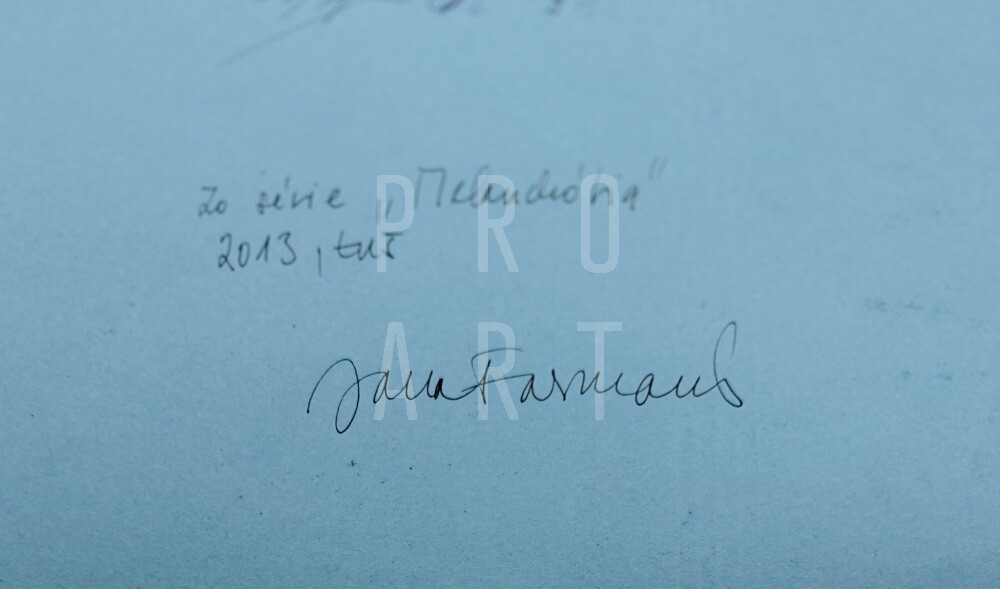 Zo série „Melanchólia"
2013, tuš
PRO
ART
Jana Farmanová